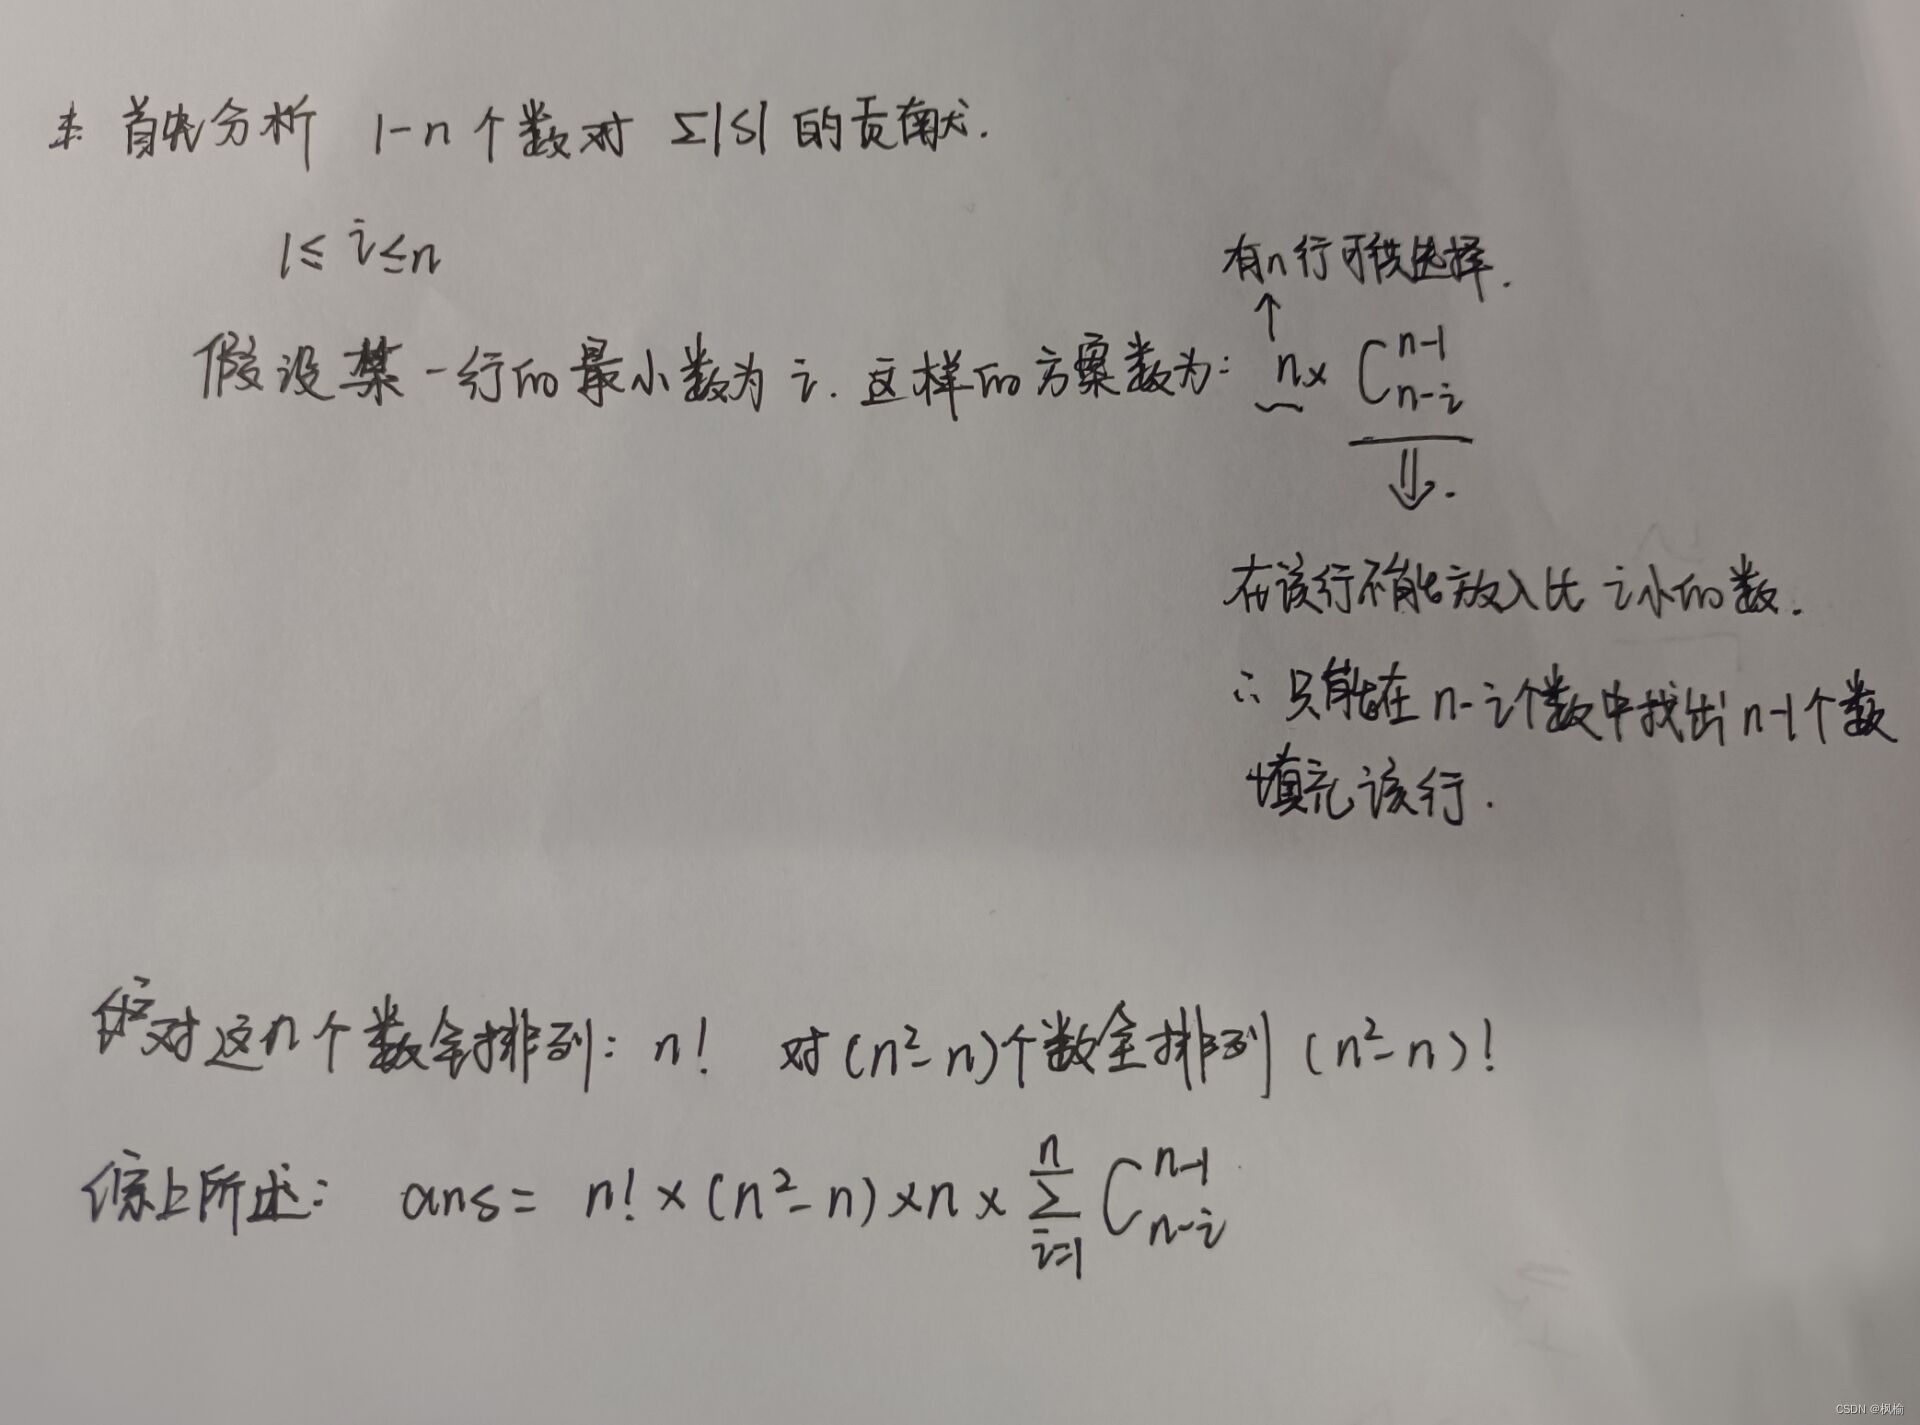 * 首先分析 1-n 个数对 Σ|S| 的贡献.
1≤ i ≤n
有n行可供选择.
↑
假设某一行的最小数为 i. 这样的方案数为: n× C_{n-i}^{n-1}
⇓.
在该行不能放入比 i小的数.
∴ 只能在 n-i个数中找出 n-1个数
填充该行.
对这n个数全排列: n! 对(n²-n)个数全排列 (n²-n)!
综上所述: ans= n! × (n²-n) ×n × \sum_{i=1}^{n} C_{n-i}^{n-1}
CSDN @枫榆